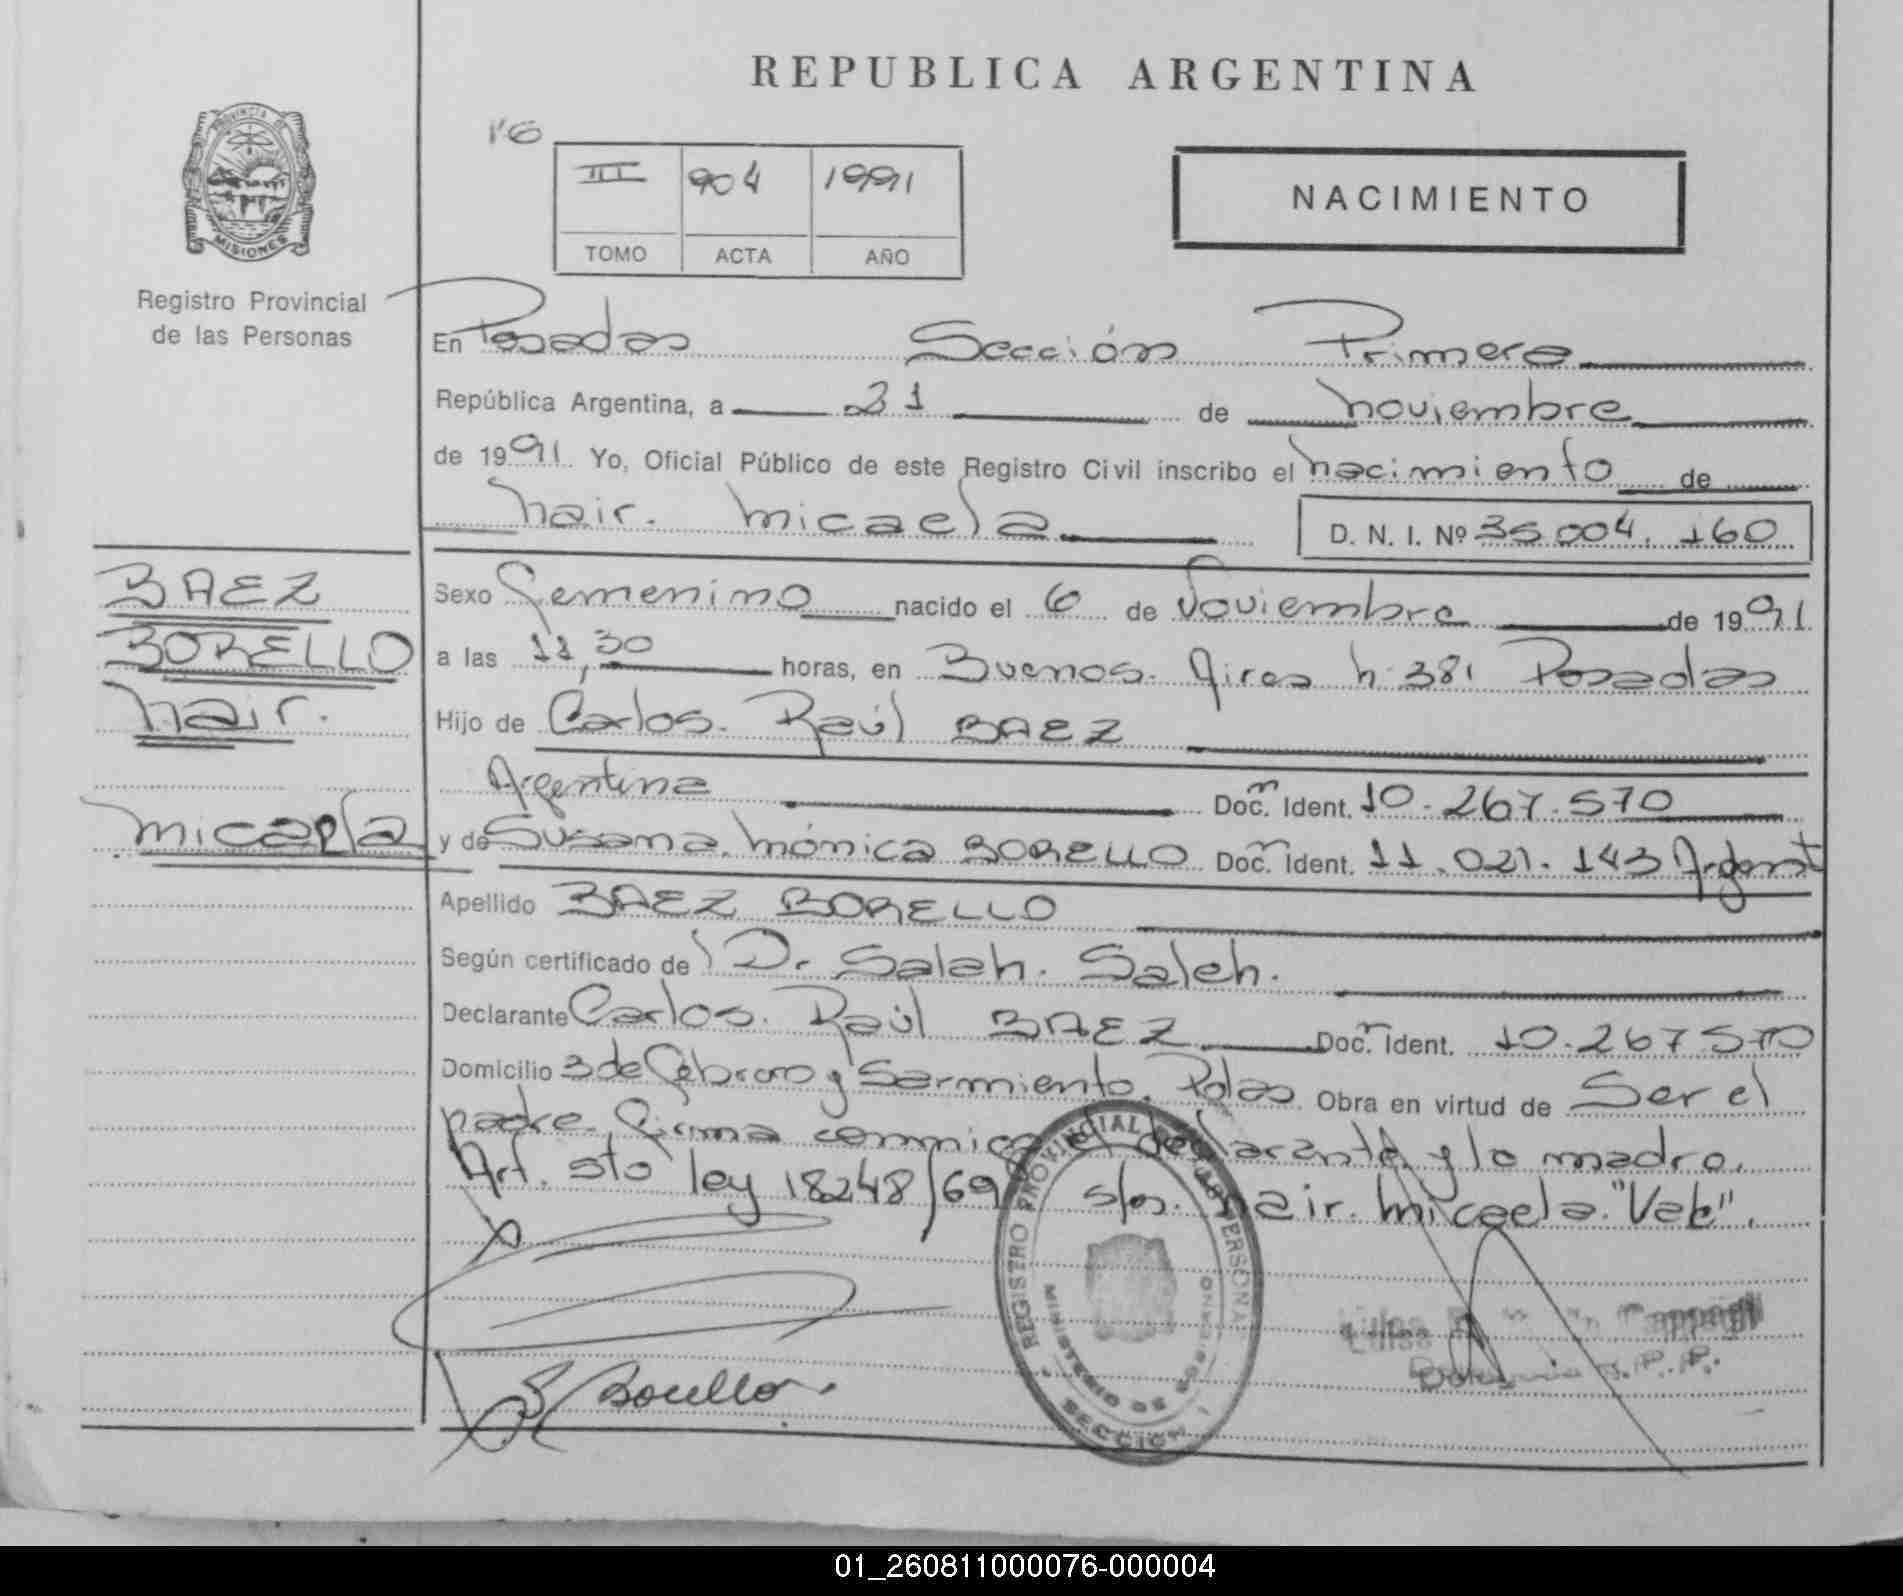 REPUBLICA ARGENTINA
PROVINCIA DE
MISIONES
Registro Provincial
de las Personas
III 904 1991
TOMO ACTA AÑO
NACIMIENTO
En Posadas Sección Primera
República Argentina, a 21 de noviembre
de 1991. Yo, Oficial Público de este Registro Civil inscribo el nacimiento de
nair. micaela
D. N. I. Nº 35 004. 160
BAEZ
BORELLO
nair.
micaela
Sexo femenino nacido el 6 de Noviembre de 1991.
a las 11,30 horas, en Buenos. Aires n. 381 Posadas
Hijo de Carlos. Raúl BAEZ
Argentina Doc. Ident. 10.267.570
y de Susana. mónica BORELLO Doc. Ident. 11.021.143 Argent
Apellido BAEZ BORELLO
Según certificado de Dr. Salah. Saleh.
Declarante Carlos. Raúl BAEZ Doc. Ident. 10.267.570
Domicilio 3 de febrero y Sarmiento. Pdas Obra en virtud de Ser el
padre. firma conmigo el declarante y la madre.
Art. 5to ley 18248/69 nair. micaela. "Vale".
REGISTRO PROVINCIAL PERSONAS
MINISTERIO DE GOBIERNO
SECCION 1
Borello
01_260811000076-000004